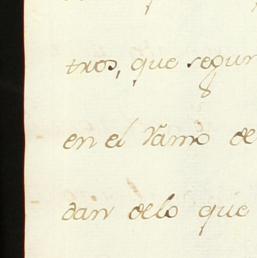 tros, que segun
en el Ramo de
dan delo que